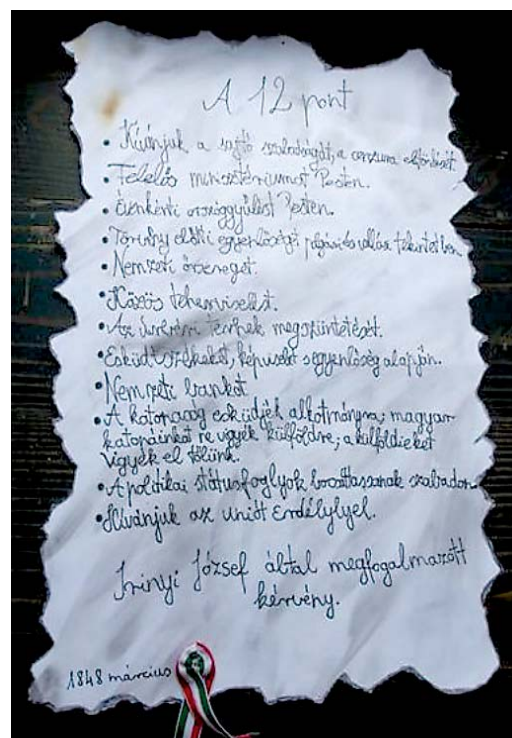 A 12 pont
• Kívánjuk a sajtó szabadságát, a cenzura eltörlését.
• Felelős minisztériumot Pesten.
• Évenkénti országgyűlést Pesten.
• Törvény előtti egyenlőséget polgári és vallási tekintetben.
• Nemzeti őrsereget.
• Közös teherviselést.
• Az úrbéri terhek megszüntetését.
• Esküdtszékeket, képviselet egyenlőség alapján.
• Nemzeti bankot
• A katonaság esküdjék alkotmányra; magyar
katonáinkat ne vigyék külföldre; a külföldieket
vigyék el tőlünk.
• A politikai státusfoglyok bocsáttassanak szabadon.
• Kívánjuk az uniót Erdélylyel.
Irinyi József által megfogalmazott
kérvény.
1848 március